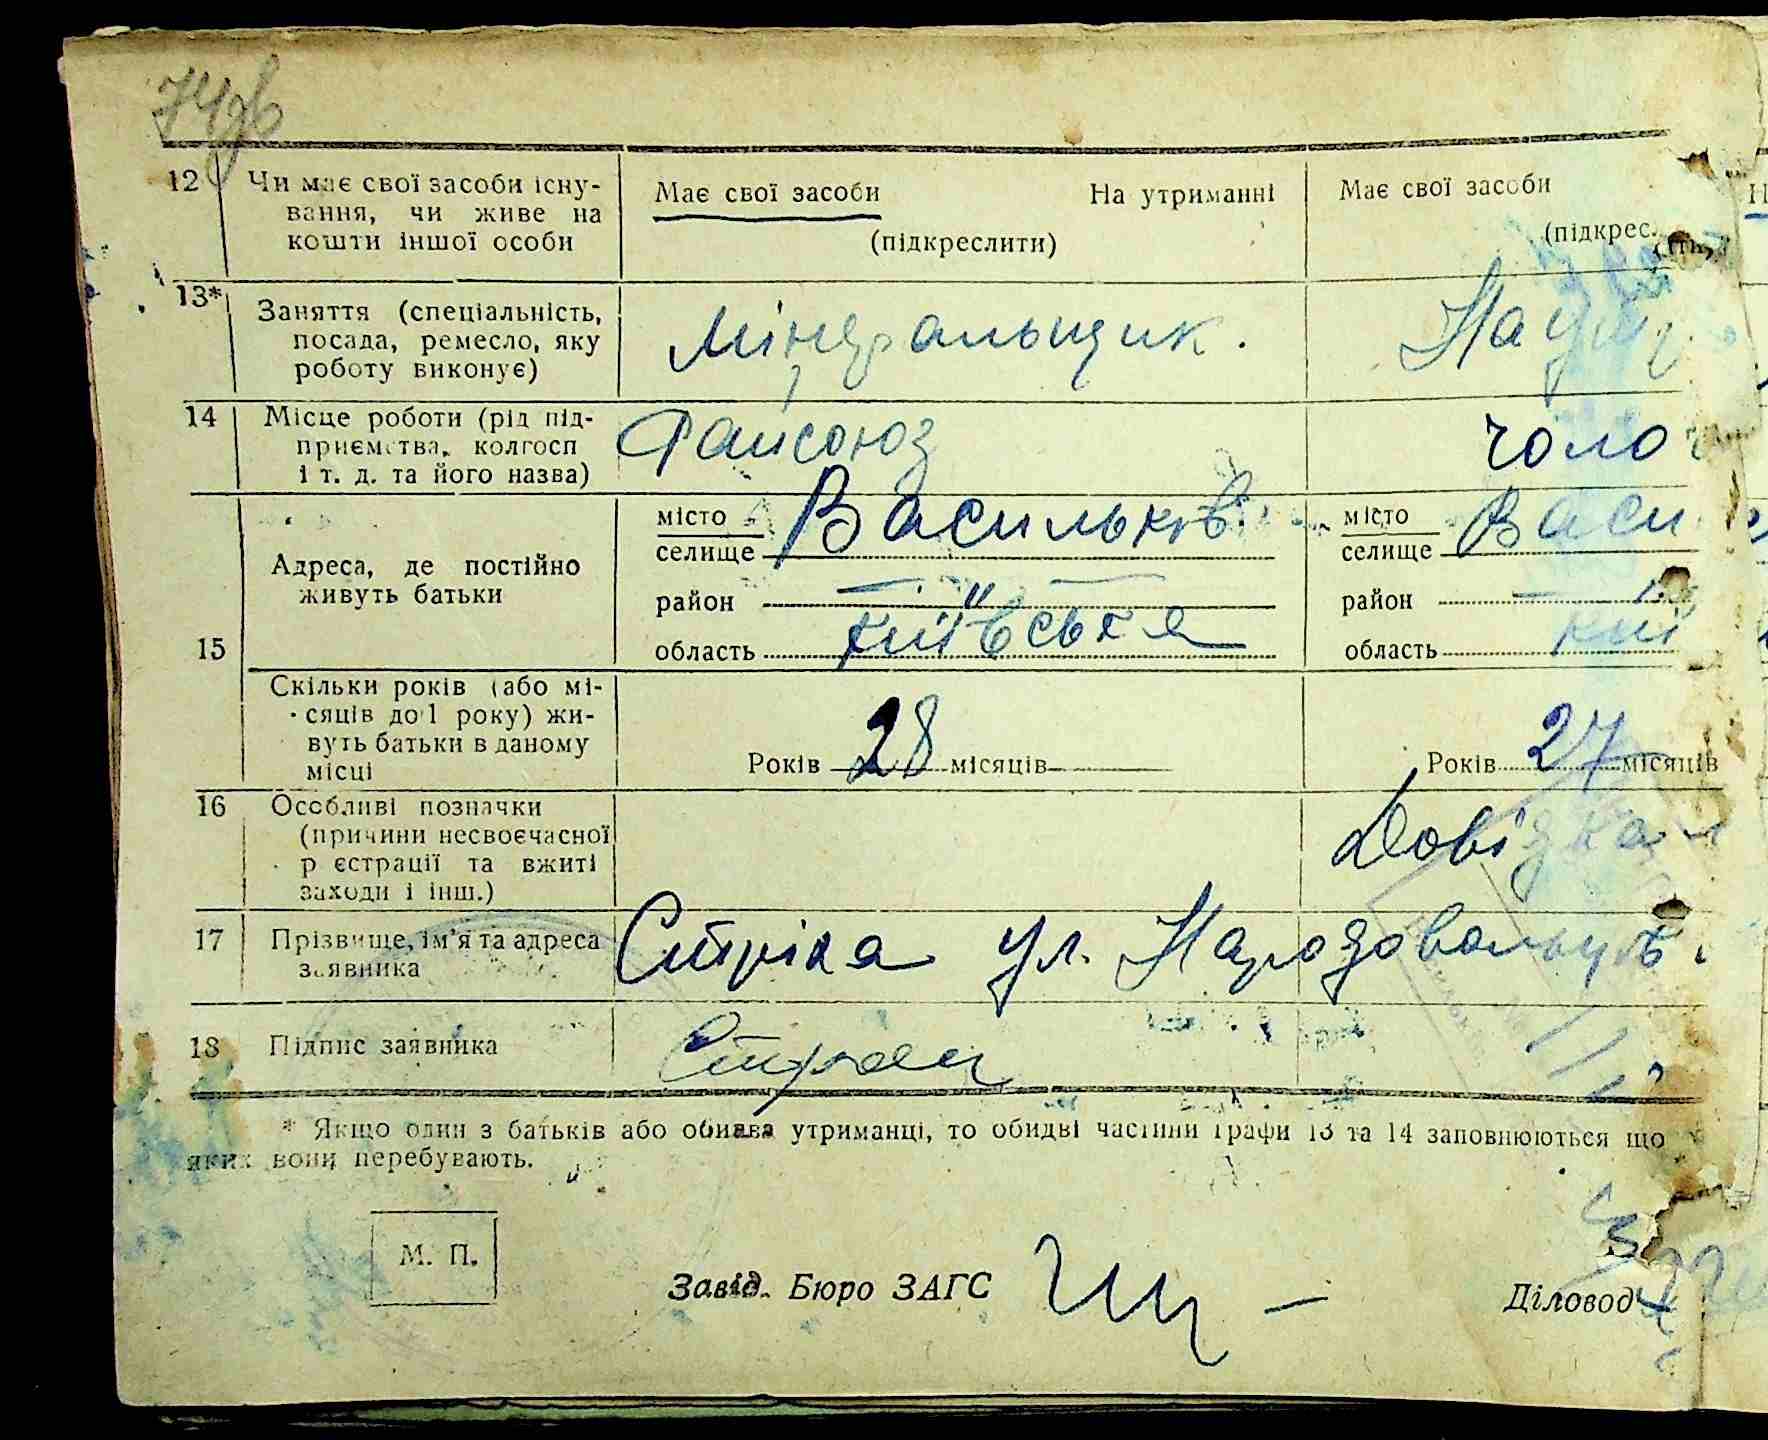 74зв
12 Чи має свої засоби існу- Має свої засоби На утриманні Має свої засоби
вання, чи живе на (підкреслити) (підкрес.
кошти іншої особи
13* Заняття (спеціальність, Мінеральщик. На
посада, ремесло, яку
роботу виконує)
14 Місце роботи (рід під- Райсоюз чоло
приємства, колгосп
і т. д. та його назва)
15 Адреса, де постійно
живуть батьки
місто Васильків місто Васи
селище селище
район — район —
область Київська область Киї
Скільки років (або мі-
сяців до 1 року) жи-
вуть батьки в даному
місці
Років 28 місяців Років 27 місяців
16 Особливі позначки Довідка
(причини несвоєчасної
р єстрації та вжиті
заходи і інш.)
17 Прізвище, ім'я та адреса Стріха ул.
заявника
18 Підпис заявника
* Якщо один з батьків або обидва утриманці, то обидві частини графи 13 та 14 заповнюються що
яких вони перебувають.
М. П.
Завід. Бюро ЗАГС Діловод